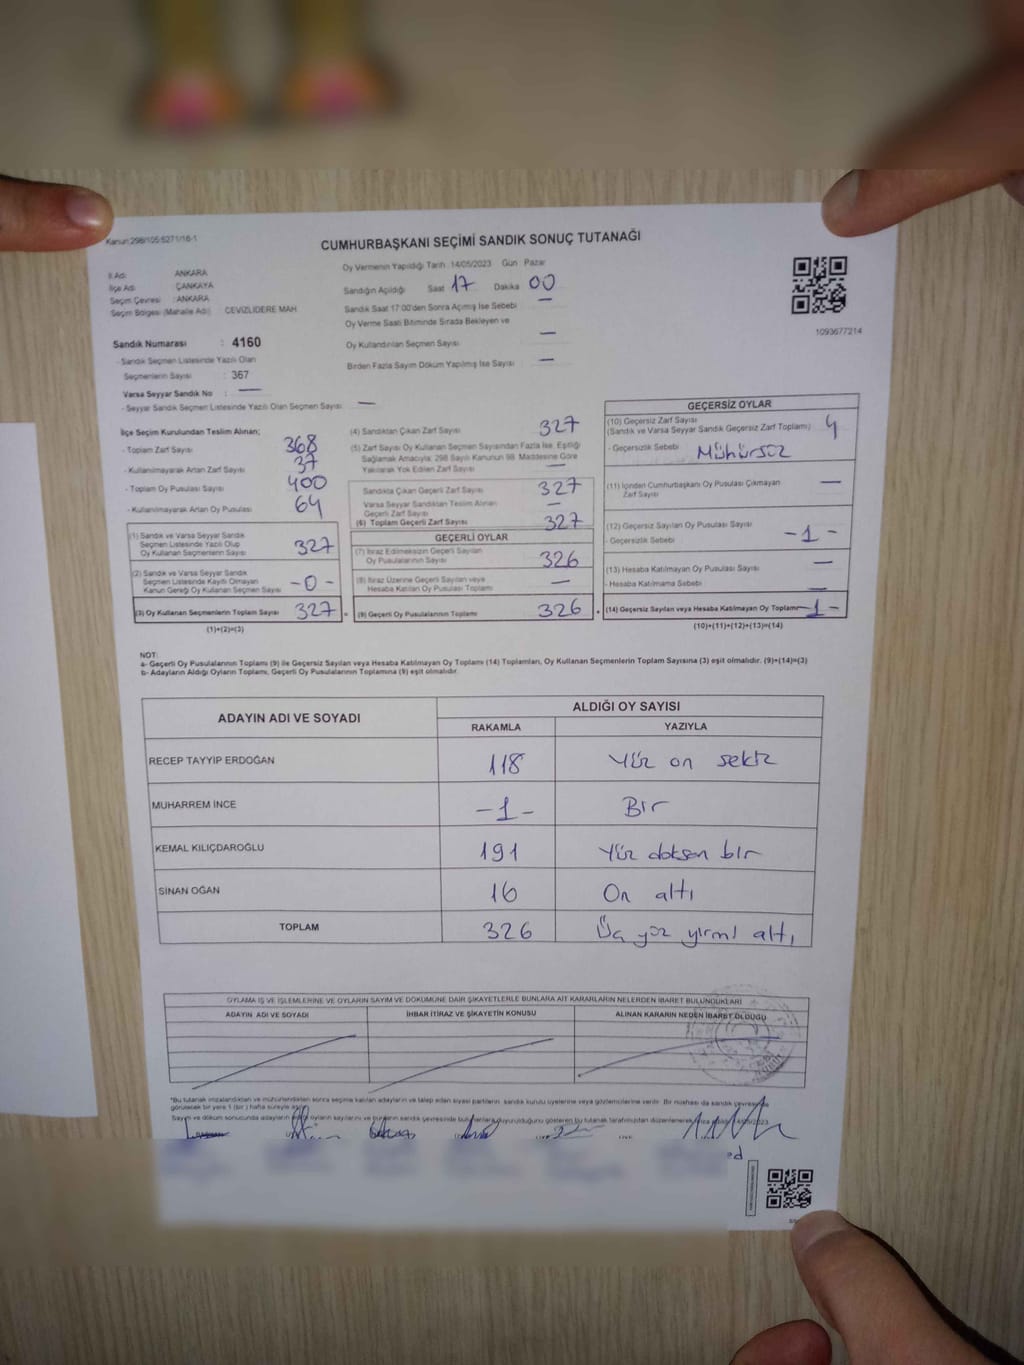 Kanun:298/105-5271/16-1
CUMHURBAŞKANI SEÇİMİ SANDIK SONUÇ TUTANAĞI
İl Adı ANKARA
İlçe Adı ÇANKAYA
Seçim Çevresi : ANKARA
Seçim Bölgesi (Mahalle Adı) CEVİZLİDERE MAH
Oy Vermenin Yapıldığı Tarih 14/05/2023 Gün Pazar
Sandığın Açıldığı Saat 17 Dakika 00
Sandık Saat 17:00'den Sonra Açımış İse Sebebi —
Oy Verme Saati Bitiminde Sırada Bekleyen ve
Oy Kullandırılan Seçmen Sayısı —
Birden Fazla Sayım Döküm Yapılmış İse Sayısı —
1093677214
Sandık Numarası : 4160
- Sandık Seçmen Listesinde Yazılı Olan
Seçmenlerin Sayısı : 367
Varsa Seyyar Sandık No : —
- Seyyar Sandık Seçmen Listesinde Yazılı Olan Seçmen Sayısı —
İlçe Seçim Kurulundan Teslim Alınan;
- Toplam Zarf Sayısı 368
- Kullanılmayarak Artan Zarf Sayısı 37
- Toplam Oy Pusulası Sayısı 400
- Kullanılmayarak Artan Oy Pusulası 64
(1) Sandık ve Varsa Seyyar Sandık
Seçmen Listesinde Yazılı Olup
Oy Kullanan Seçmenlerin Sayısı 327
(2) Sandık ve Varsa Seyyar Sandık
Seçmen Listesinde Kayıtlı Olmayan
Kanun Gereği Oy Kullanan Seçmen Sayısı -0-
(3) Oy Kullanan Seçmenlerin Toplam Sayısı 327 =
(1)+(2)=(3)
(4) Sandıktan Çıkan Zarf Sayısı 327
(5) Zarf Sayısı Oy Kullanan Seçmen Sayısından Fazla İse, Eşitliği
Sağlamak Amacıyla; 298 Sayılı Kanunun 98. Maddesine Göre
Yakılarak Yok Edilen Zarf Sayısı —
Sandıkta Çıkan Geçerli Zarf Sayısı 327
Varsa Seyyar Sandıktan Teslim Alınan
Geçerli Zarf Sayısı —
(6) Toplam Geçerli Zarf Sayısı 327
GEÇERLİ OYLAR
(7) İtiraz Edilmeksizin Geçerli Sayılan
Oy Pusulalarının Sayısı 326
(8) İtiraz Üzerine Geçerli Sayılan veya
Hesaba Katılan Oy Pusulası Toplamı —
(9) Geçerli Oy Pusulalarının Toplamı 326 +
GEÇERSİZ OYLAR
(10) Geçersiz Zarf Sayısı
(Sandık ve Varsa Seyyar Sandık Geçersiz Zarf Toplamı) 4
- Geçersizlik Sebebi Mühürsüz
(11) İçinden Cumhurbaşkanı Oy Pusulası Çıkmayan
Zarf Sayısı —
(12) Geçersiz Sayılan Oy Pusulası Sayısı -1-
- Geçersizlik Sebebi
(13) Hesaba Katılmayan Oy Pusulası Sayısı —
- Hesaba Katılmama Sebebi —
(14) Geçersiz Sayılan veya Hesaba Katılmayan Oy Toplamı -1-
(10)+(11)+(12)+(13)=(14)
NOT:
a- Geçerli Oy Pusulalarının Toplamı (9) ile Geçersiz Sayılan veya Hesaba Katılmayan Oy Toplamı (14) Toplamları, Oy Kullanan Seçmenlerin Toplam Sayısına (3) eşit olmalıdır. (9)+(14)=(3)
b- Adayların Aldığı Oyların Toplamı, Geçerli Oy Pusulalarının Toplamına (9) eşit olmalıdır.
ADAYIN ADI VE SOYADI ALDIĞI OY SAYISI
RAKAMLA YAZIYLA
RECEP TAYYİP ERDOĞAN 118 Yüz on sekiz
MUHARREM İNCE -1- Bir
KEMAL KILIÇDAROĞLU 191 Yüz doksan bir
SİNAN OĞAN 16 On altı
TOPLAM 326 Üç yüz yirmi altı
OYLAMA İŞ VE İŞLEMLERİNE VE OYLARIN SAYIM VE DÖKÜMÜNE DAİR ŞİKAYETLERLE BUNLARA AİT KARARLARIN NELERDEN İBARET BULUNDUKLARI
ADAYIN ADI VE SOYADI İHBAR İTİRAZ VE ŞİKAYETİN KONUSU ALINAN KARARIN NEDEN İBARET OLDUĞU
*Bu tutanak imzalandıktan ve mühürlendikten sonra seçime katılan adayların ve talep eden siyasi partilerin sandık kurulu üyelerine veya gözlemcilerine verilir. Bir nüshası da sandık çevresinde
görülecek bir yere 1 (bir) hafta süreyle asılır.